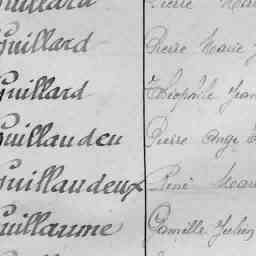 Guillard Pierre
Guillard Pierre Marie
Guillard Théophile Jean
Guillaudeu Pierre Ange
Guillaudeux René
Guillaume Camille Julien